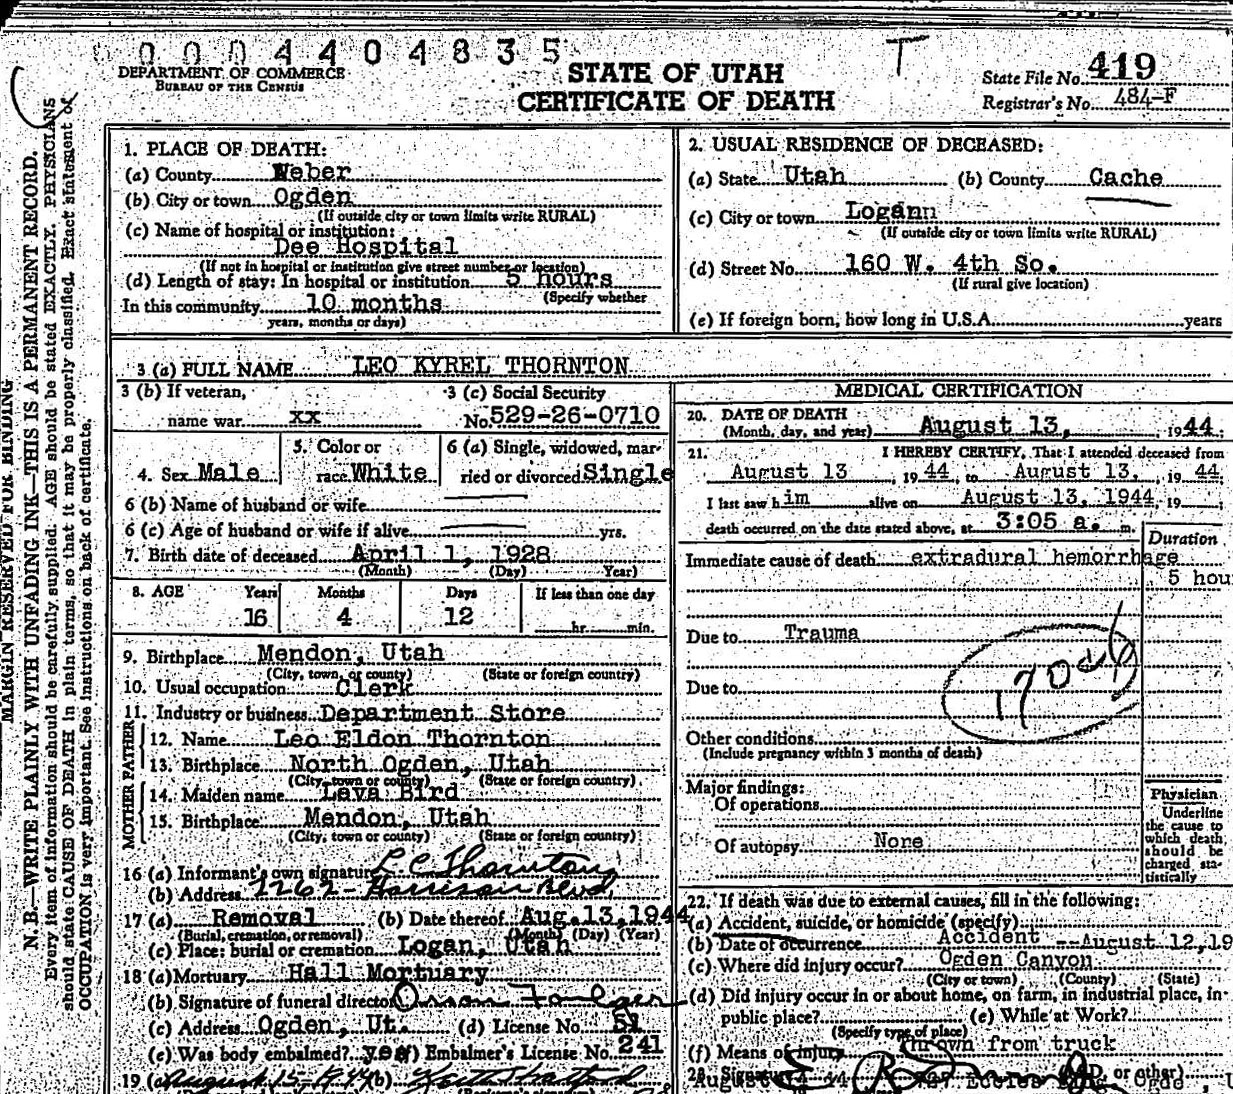 0004404835
DEPARTMENT OF COMMERCE
BUREAU OF THE CENSUS
STATE OF UTAH
CERTIFICATE OF DEATH
T
State File No. 419
Registrar's No. 484-F
MARGIN RESERVED FOR BINDING
N. B.—WRITE PLAINLY WITH UNFADING INK—THIS IS A PERMANENT RECORD.
Every item of information should be carefully supplied. AGE should be stated EXACTLY. PHYSICIANS
should state CAUSE OF DEATH in plain terms, so that it may be properly classified. Exact statement of
OCCUPATION is very important. See instructions on back of certificate.
1. PLACE OF DEATH:
(a) County Weber
(b) City or town Ogden
(If outside city or town limits write RURAL)
(c) Name of hospital or institution:
Dee Hospital
(If not in hospital or institution give street number or location)
(d) Length of stay: In hospital or institution 5 hours
(Specify whether
In this community 10 months
years, months or days)
2. USUAL RESIDENCE OF DECEASED:
(a) State Utah (b) County Cache
(c) City or town Logann
(If outside city or town limits write RURAL)
(d) Street No. 160 W. 4th So.
(If rural give location)
(e) If foreign born, how long in U.S.A. years
3 (a) FULL NAME LEO KYREL THORNTON
3 (b) If veteran, name war xx
3 (c) Social Security No. 529-26-0710
4. Sex Male
5. Color or race White
6 (a) Single, widowed, married or divorced Single
6 (b) Name of husband or wife
6 (c) Age of husband or wife if alive yrs.
7. Birth date of deceased April 1, 1928
(Month) (Day) Year)
8. AGE Years Months Days If less than one day
16 4 12 hr. min.
9. Birthplace Mendon, Utah
(City, town, or county) (State or foreign country)
10. Usual occupation Clerk
11. Industry or business Department Store
FATHER
12. Name Leo Eldon Thornton
13. Birthplace North Ogden, Utah
(City, town or county) (State or foreign country)
MOTHER
14. Maiden name Leva Bird
15. Birthplace Mendon, Utah
(City, town or county) (State or foreign country)
16 (a) Informant's own signature L C Thornton
(b) Address 1262 - Harrison Blvd
17 (a) Removal (b) Date thereof Aug. 13, 1944
(Burial, cremation, or removal) (Month) (Day) (Year)
(c) Place: burial or cremation Logan, Utah
18 (a) Mortuary Hall Mortuary
(b) Signature of funeral director
(c) Address Ogden, Ut. (d) License No. 51
(e) Was body embalmed? yes (f) Embalmer's License No. 241
19 (a) August 15-1944 (b)
MEDICAL CERTIFICATION
20. DATE OF DEATH
(Month, day, and year) August 13, 1944
21. I HEREBY CERTIFY, That I attended deceased from
August 13, 1944, to August 13, 1944,
I last saw him alive on August 13, 1944, 19
death occurred on the date stated above, at 3:05 a. m.
Duration
Immediate cause of death extradural hemorrhage
5 hou
Due to Trauma
170d
Due to
Other conditions
(Include pregnancy within 3 months of death)
Major findings:
Of operations
Of autopsy None
Physician
Underline
the cause to
which death
should be
charged sta-
tistically
22. If death was due to external causes, fill in the following:
(a) Accident, suicide, or homicide (specify)
(b) Date of occurrence Accident --August 12,19
(c) Where did injury occur? Ogden Canyon
(City or town) (County) (State)
(d) Did injury occur in or about home, on farm, in industrial place, in
public place? (e) While at Work?
(Specify type of place)
(f) Means of injury Thrown from truck